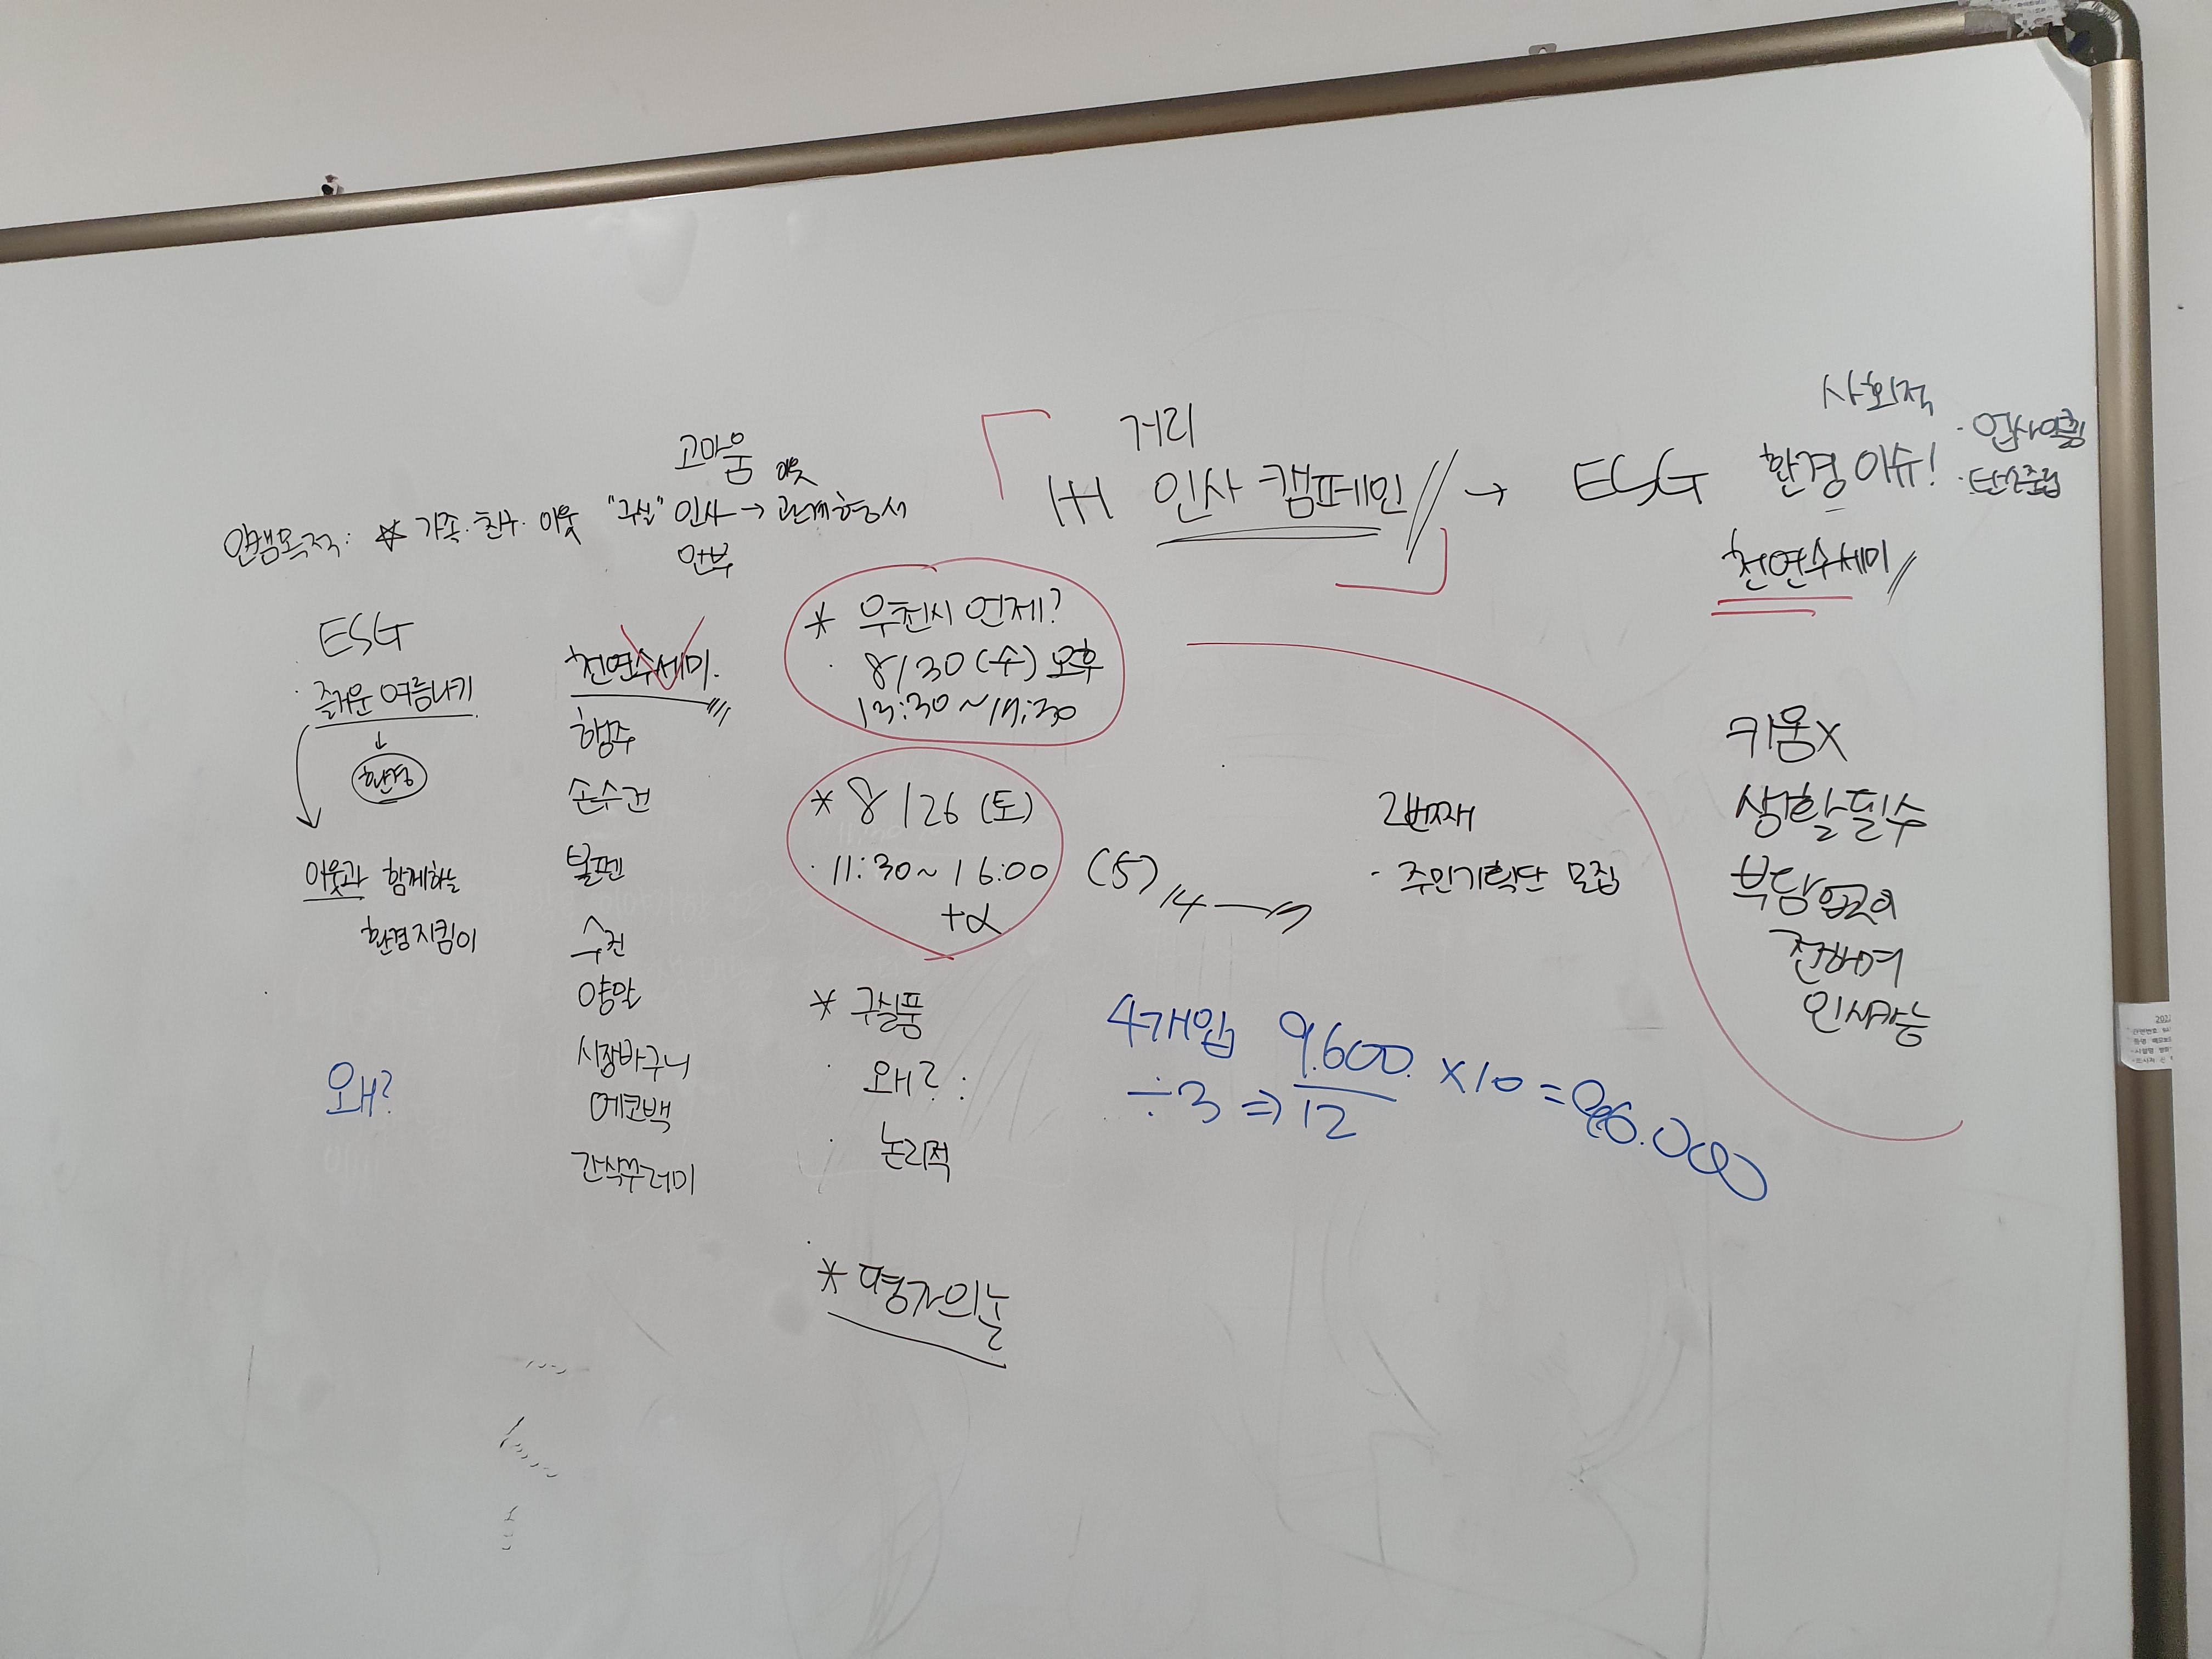 거리
1+1 인사 캠페인 → ESG 환경 이슈!
사회적
· 업사이클링
· 탄소중립
천연수세미
고마움
이웃
인캠목적: ☆ 가족·친구·이웃 "구실" 인사 → 관계형성
안부
ESG
· 즐거운 여름나기
↓
환경
이웃과 함께하는
환경지킴이
왜?
천연수세미.
행주
손수건
볼펜
수건
양말
시장바구니
에코백
간식꾸러미
* 우천시 언제?
· 8/30 (수) 오후
* 8/26 (토)
· 11:30~16:00
+α
(5)
14
2번째
· 주민기획단 모집
* 구실품
· 왜? :
· 논리적
* 명자의눈
4개입 9.600. ×10 = 96.000
÷3 ⇒ 12
키움X
생활필수
부담없이
전하여
인사가능